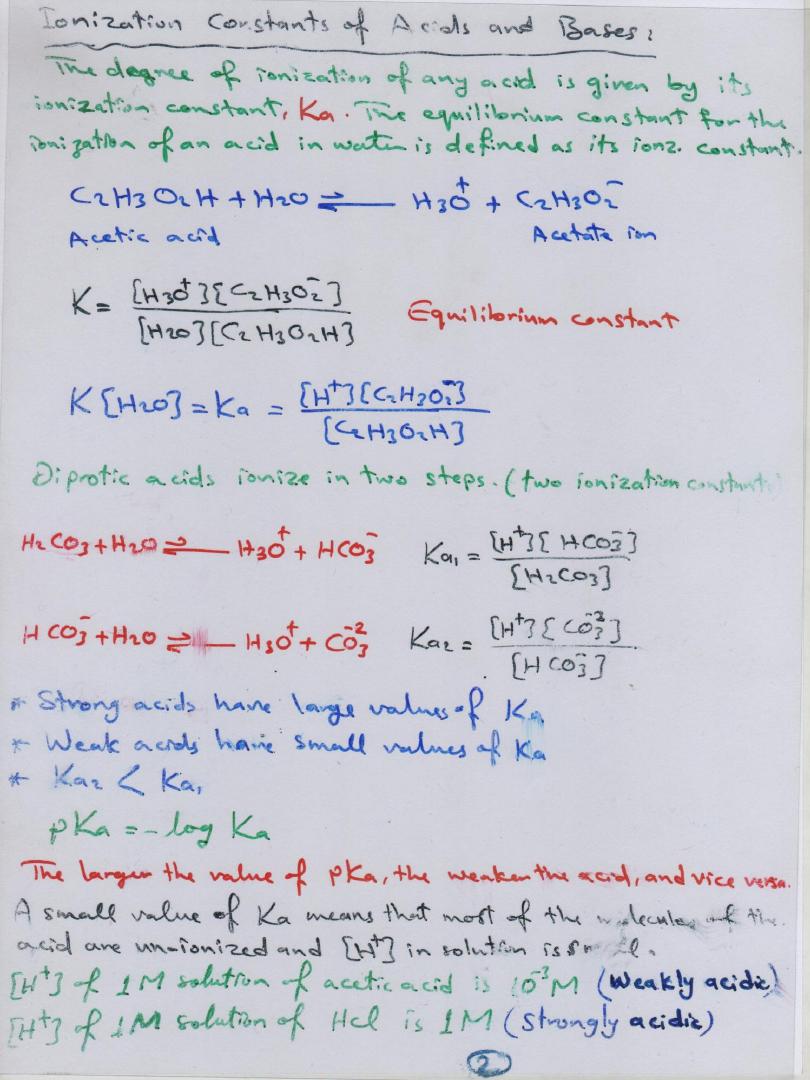 Ionization Constants of Acids and Bases:
The degree of ionization of any acid is given by its
ionization constant, Ka. The equilibrium constant for the
ionization of an acid in water is defined as its ionz. constant.
C2H3O2H + H2O ⇌ H3O⁺ + C2H3O2⁻
Acetic acid Acetate ion
K = [H3O⁺][C2H3O2⁻] / [H2O][C2H3O2H] Equilibrium constant
K[H2O] = Ka = [H⁺][C2H3O2⁻] / [C2H3O2H]
Diprotic acids ionize in two steps. (two ionization constants
H2CO3 + H2O ⇌ H3O⁺ + HCO3⁻ Ka1 = [H⁺][HCO3⁻] / [H2CO3]
HCO3⁻ + H2O ⇌ H3O⁺ + CO3⁻² Ka2 = [H⁺][CO3⁻²] / [HCO3⁻]
* Strong acids have large values of Ka
* Weak acids have small values of Ka
* Ka2 < Ka1
pKa = - log Ka
The larger the value of pKa, the weaker the acid, and vice versa.
A small value of Ka means that most of the molecules of the
acid are un-ionized and [H⁺] in solution is
[H⁺] of 1M solution of acetic acid is 10⁻³M (Weakly acidic)
[H⁺] of 1M solution of HCl is 1M (Strongly acidic)
2